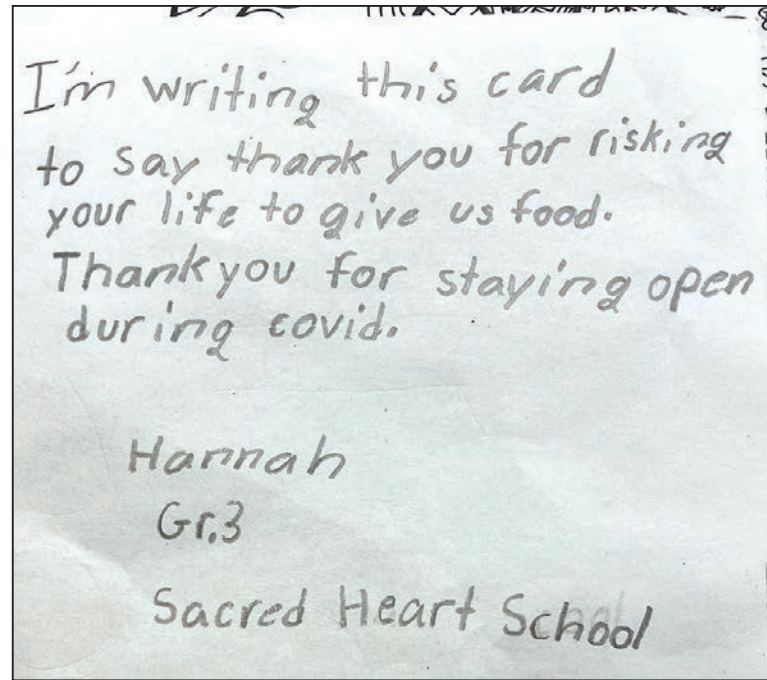 I'm writing this card
to say thank you for risking
your life to give us food.
Thankyou for staying open
during covid.
Hannah
Gr.3
Sacred Heart School